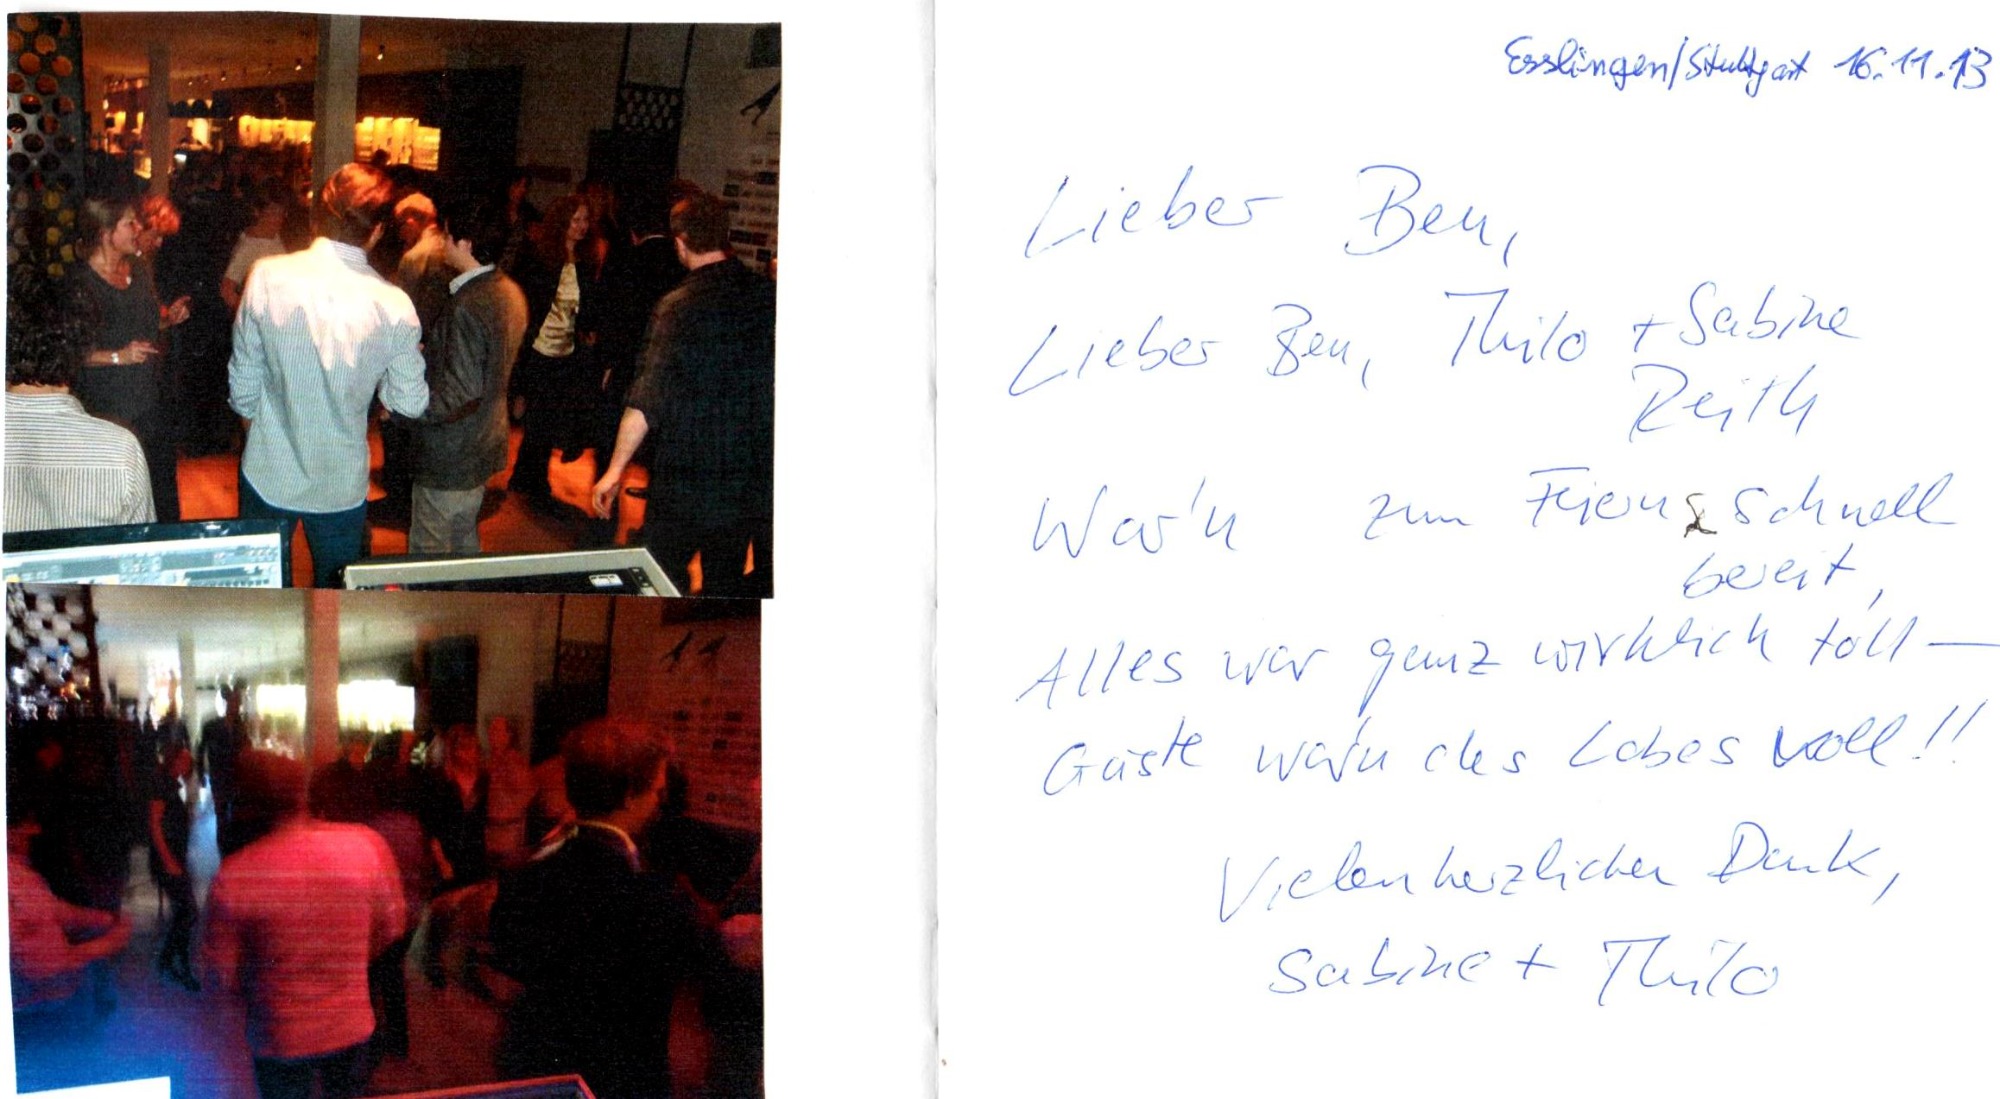 Esslingen/Stuttgart 16.11.13
Lieber Ben,
Lieber Ben, Thilo + Sabine
Reith
War'n zum Feiern schnell
bereit,
Alles war ganz wirklich toll —
Gäste war'n des Lobes voll!!
Vielen herzlichen Dank,
Sabine + Thilo